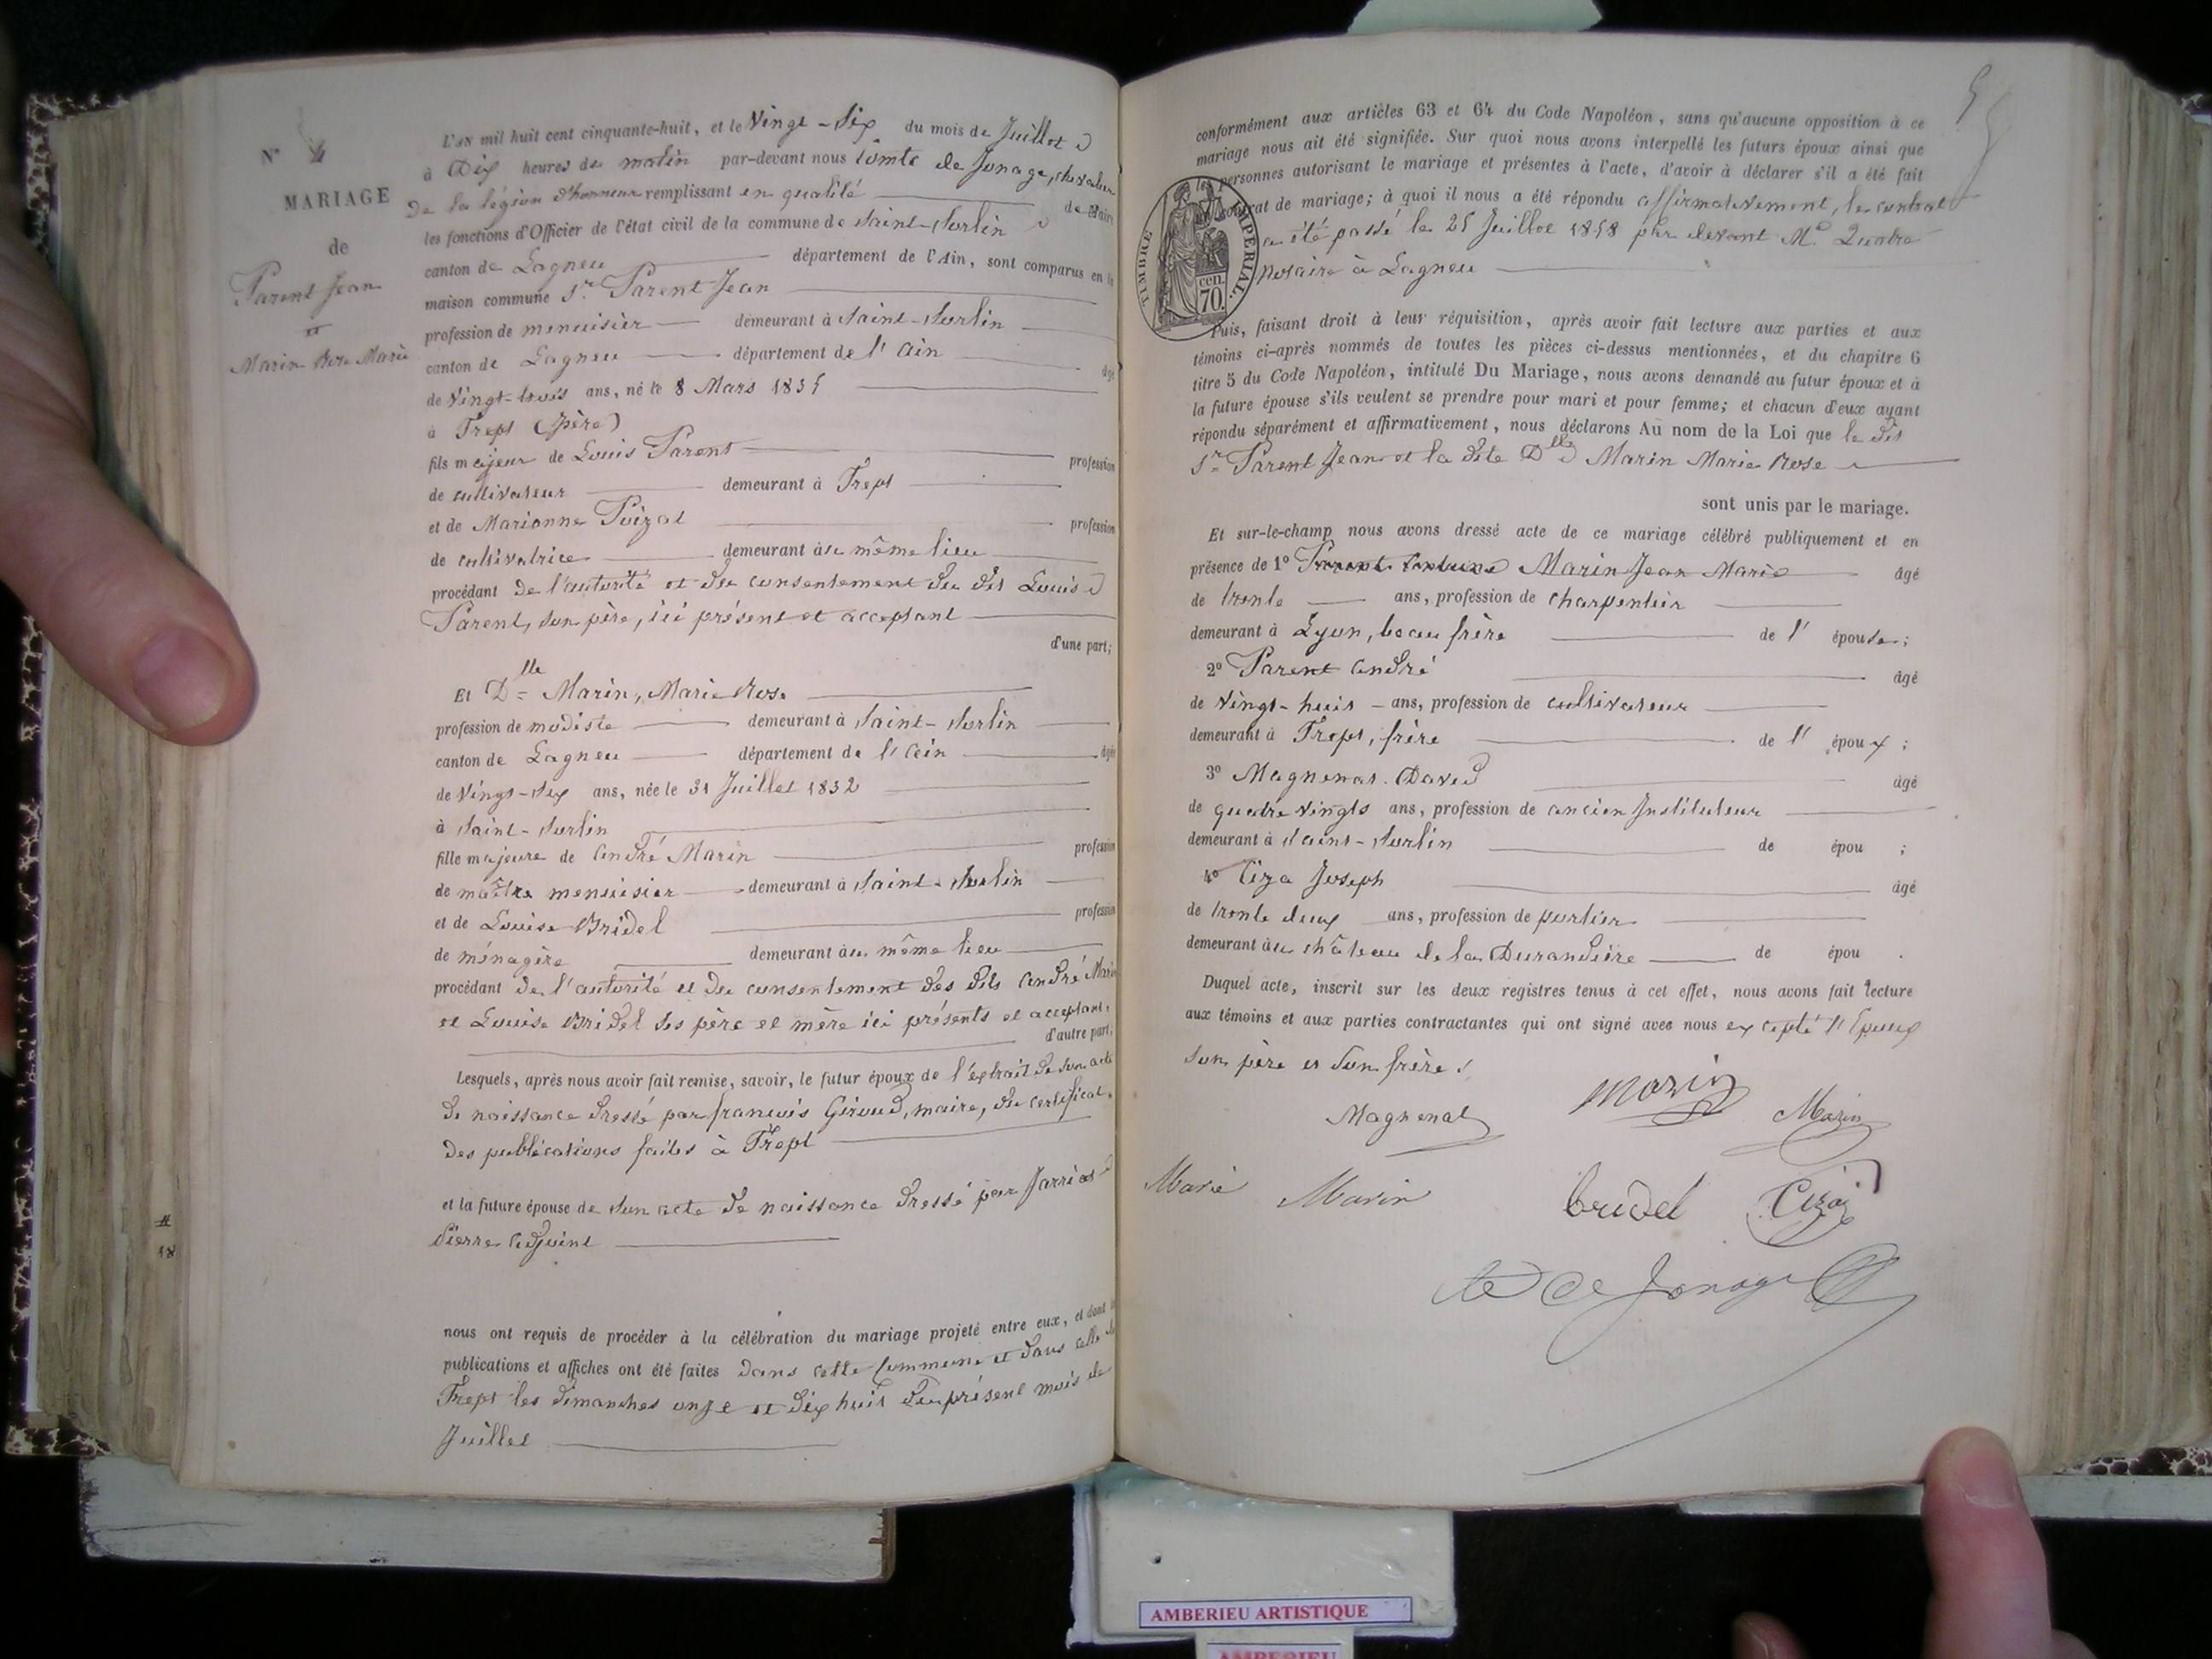 N° 4
MARIAGE
de
Parent Jean
et
Marin Rose Marie
L'AN mil huit cent cinquante-huit, et le Vingt-Six du mois de Juillet
à Dix heures du matin par-devant nous Comte de Jonage, chevalier
De la légion d'honneur remplissant en qualité de Maire
les fonctions d'Officier de l'état civil de la commune de Saint-Sorlin
canton de Lagneu département de l'Ain, sont comparus en la
maison commune Sr Parent Jean
profession de menuisier demeurant à Saint-Sorlin
canton de Lagneu département de l'Ain âgé
de Vingt-trois ans, né le 8 Mars 1835
à Trept (Isère)
fils majeur de Louis Parent profession
de cultivateur demeurant à Trept
et de Marianne Poizat profession
de cultivatrice demeurant au même lieu
procédant De l'autorité et du consentement du dit Louis
Parent, son père, ici présent et acceptant
d'une part;
Et Dlle Marin, Marie Rose
profession de modiste demeurant à Saint-Sorlin
canton de Lagneu département de l'Ain âgée
de Vingt-Six ans, née le 31 Juillet 1832
à Saint-Sorlin
fille majeure de André Marin profession
de maître menuisier demeurant à Saint-Sorlin
et de Louise Bridel profession
de ménagère demeurant au même lieu
procédant de l'autorité et du consentement des dits André Marin
et Louise Bridel ses père et mère ici présents et acceptant.
d'autre part;
Lesquels, après nous avoir fait remise, savoir, le futur époux de l'extrait de son acte
de naissance dressé par françois Giroud, maire, du certificat
des publications faites à Trept
et la future épouse de son acte de naissance dressé par
Pierre Adjoint
nous ont requis de procéder à la célébration du mariage projeté entre eux, et dont les
publications et affiches ont été faites dans cette Commune et dans celle de
Trept les dimanches onze et dix huit du présent mois de
Juillet
18
conformément aux articles 63 et 64 du Code Napoléon, sans qu'aucune opposition à ce
mariage nous ait été signifiée. Sur quoi nous avons interpellé les futurs époux ainsi que
les personnes autorisant le mariage et présentes à l'acte, d'avoir à déclarer s'il a été fait
contrat de mariage; à quoi il nous a été répondu affirmativement, le contrat
a été passé le 25 Juillet 1858 par devant Me Quatre
notaire à Lagneu
TIMBRE IMPERIAL
70 cen.
Puis, faisant droit à leur réquisition, après avoir fait lecture aux parties et aux
témoins ci-après nommés de toutes les pièces ci-dessus mentionnées, et du chapitre 6
titre 5 du Code Napoléon, intitulé Du Mariage, nous avons demandé au futur époux et à
la future épouse s'ils veulent se prendre pour mari et pour femme; et chacun d'eux ayant
répondu séparément et affirmativement, nous déclarons Au nom de la Loi que le dit
Sr Parent Jean et la dite Dlle Marin Marie Rose
sont unis par le mariage.
Et sur-le-champ nous avons dressé acte de ce mariage célébré publiquement et en
présence de 1° Marin Jean Marie âgé
de trente ans, profession de charpentier
demeurant à Lyon, beau frère de l'épouse;
2° Parent André âgé
de Vingt-huit ans, profession de cultivateur
demeurant à Trept, frère de l'époux;
3° Magnenat David âgé
de quatre vingts ans, profession de ancien Instituteur
demeurant à Saint-Sorlin de épou ;
4° Ciza Joseph âgé
de trente deux ans, profession de portier
demeurant au château de la Durandière de épou .
Duquel acte, inscrit sur les deux registres tenus à cet effet, nous avons fait lecture
aux témoins et aux parties contractantes qui ont signé avec nous excepté l'Epoux
son père et son frère.
Magnenat Marin Marin
Marie Marin bridel Ciza
Cte de Jonage
AMBERIEU ARTISTIQUE
AMBERIEU